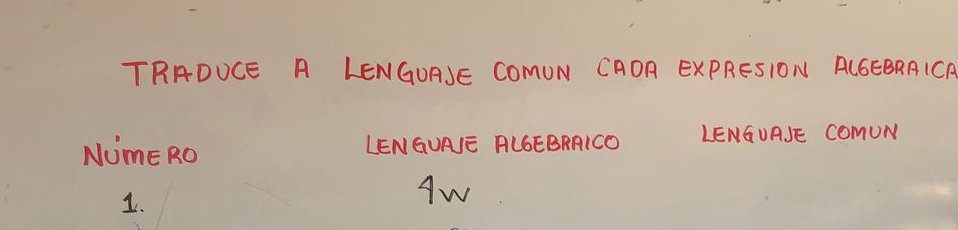 TRADUCE A LENGUAJE COMUN CADA EXPRESION ALGEBRAICA
NÚMERO LENGUAJE ALGEBRAICO LENGUAJE COMUN
1. 9w